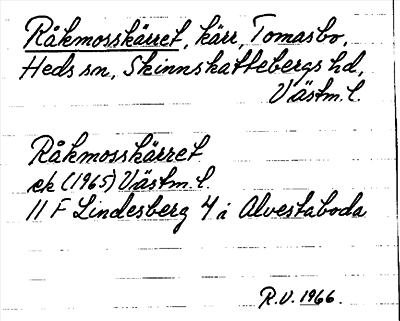 Råkmosskärret, kärr, Tomasbo,
Heds sn, Skinnskattebergs hd,
Västm. l.
Råkmosskärret
ek (1965) Västm. l.
11 F Lindesberg 4 i Alvestaboda
R.V. 1966.